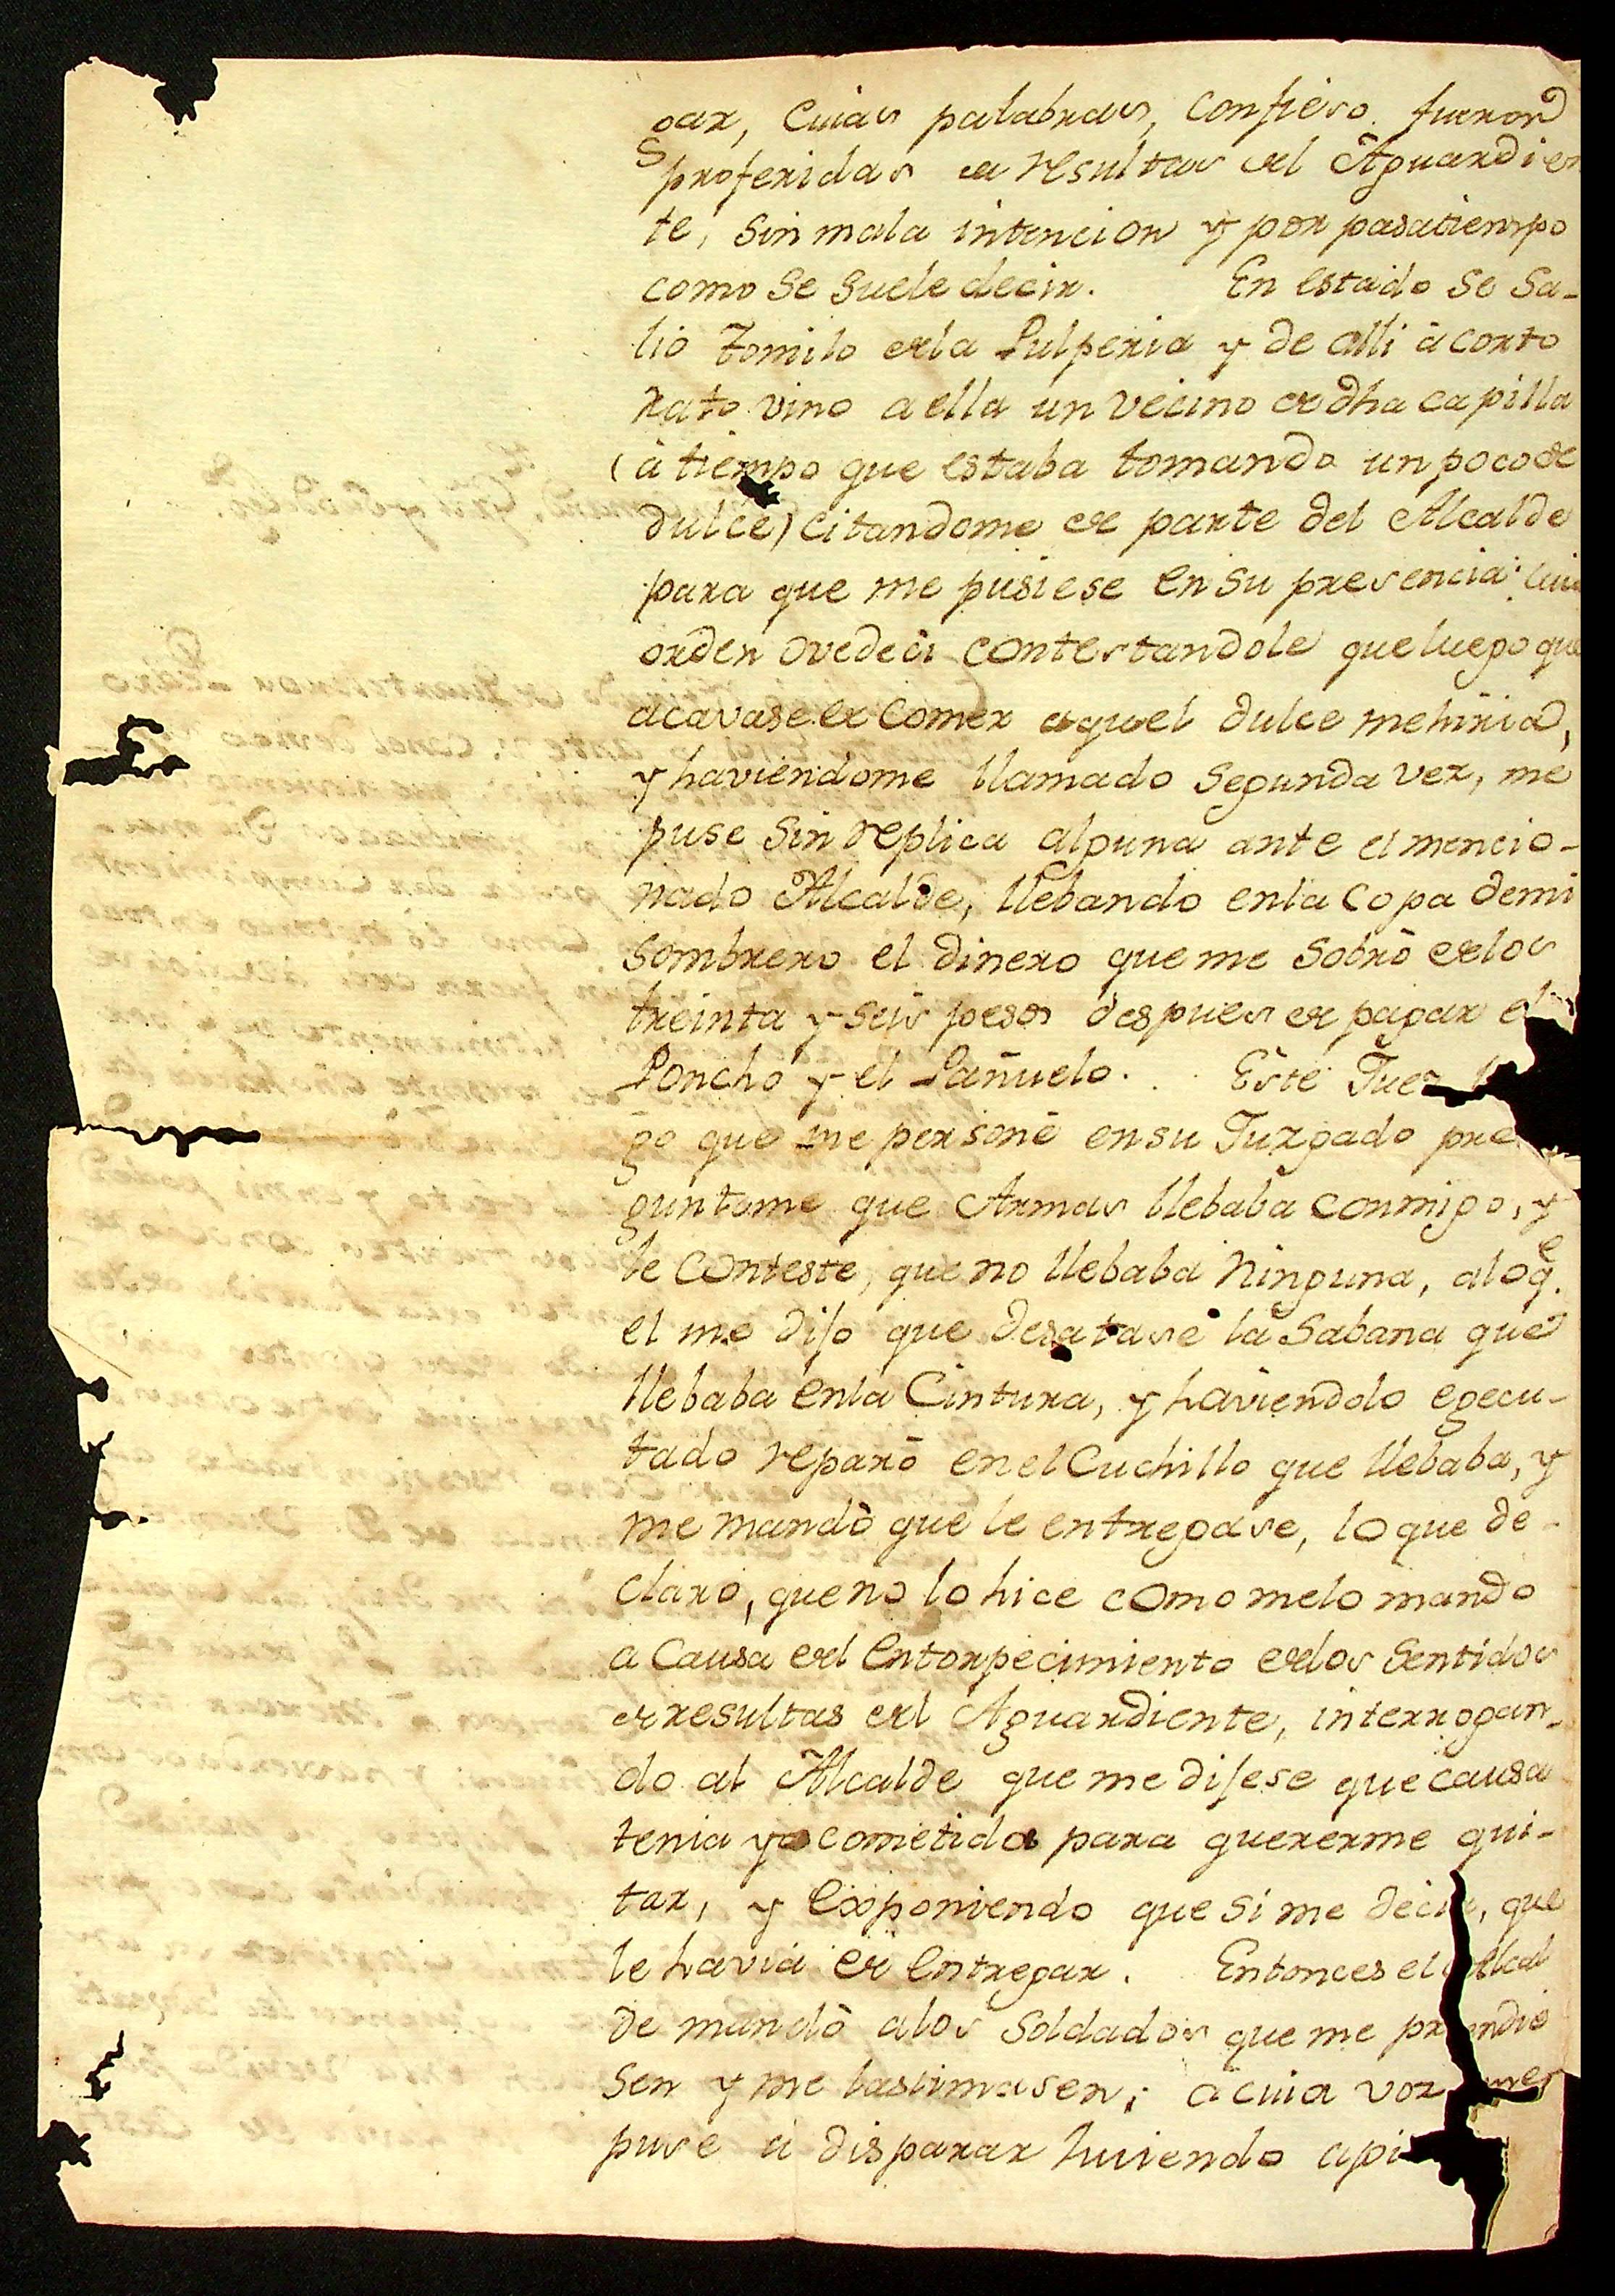 gar, Cuias palabras, confieso fueron
proferidas a resultas del Aguardien
te, sin mala intencion y por pasatiempo
como se suele decir. En estado se sa-
lió Tomilo dela Pulperia y de alli à corto
rato vino a ella un vecino de dha capilla
(à tiempo que estaba tomando un poco de
dulce) citandome de parte del Alcalde
para que me pusiese en su presencia: cuia
orden ovedeci contestandole que luego que
acavase de comer aquel dulce me hiria,
y haviendome llamado segunda vez, me
puse sin replica alguna ante el mencio-
nado Alcalde, llebando enla Copa demi
sombrero el dinero que me sobrò delos
treinta y seis pesos despues de pagar el
Poncho y el Pañuelo. Este Juez
go que me personè ensu Juzgado pre
guntome que Armas llebaba conmigo, y
le conteste, que no llebaba Ninguna, alo q.e
el me dijo que desatase la Sabana que
llebaba enla Cintura, y haviendolo egecu-
tado reparò enel Cuchillo que llebaba, y
me mandò que le entregase, lo que de-
claro, que no lo hice como melo mando
a Causa del Entorpecimiento delos Sentidos
de resultas del Aguardiente, interrogan-
do al Alcalde que me dijese que causa
tenia yo cometida para quererme qui-
tar, y Exponiendo que si me decia, que
le havia de Entregar. Entonces el Alcal
de mandò alos Soldados que me prendie
sen y me lastimasen; à cuia voz
puse à disparar huiendo api